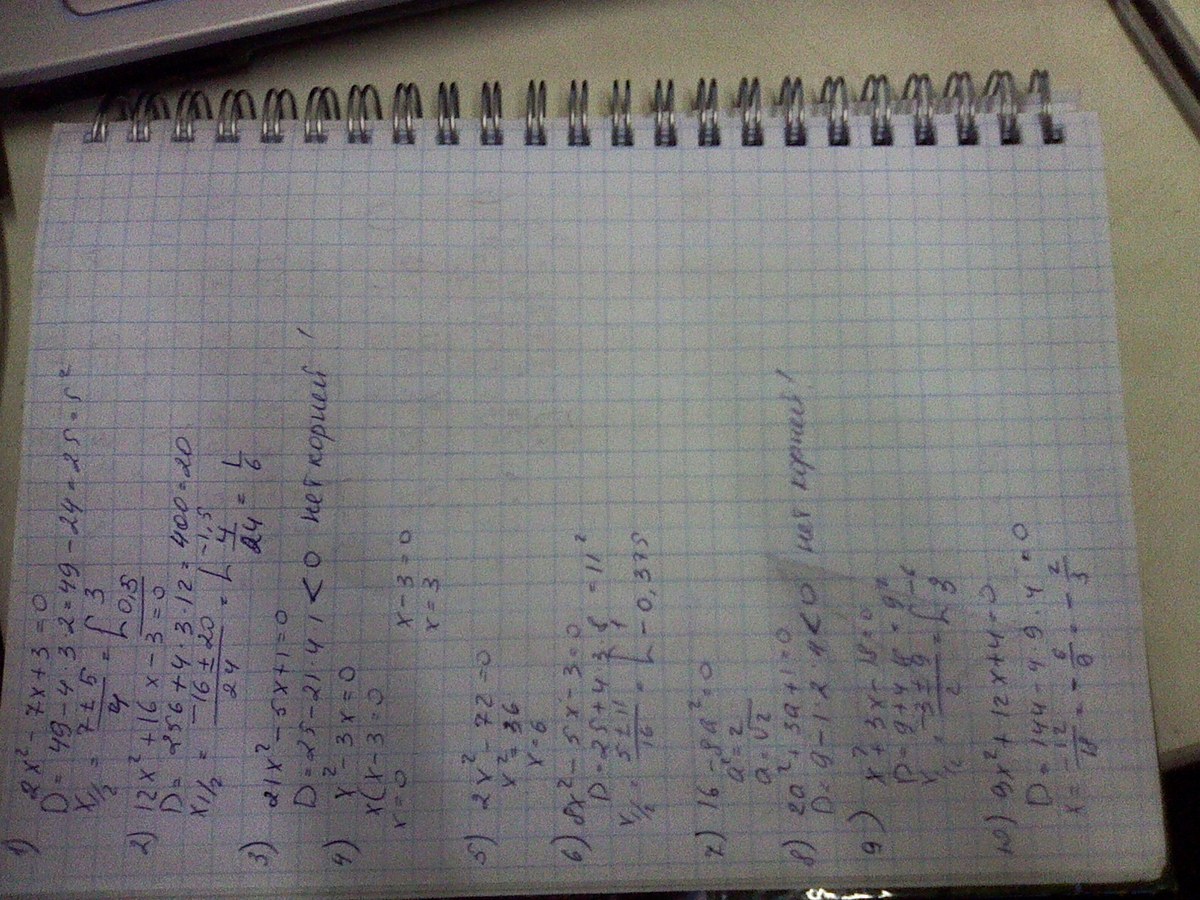 1) 2x² - 7x + 3 = 0
D = 49 - 4·3·2 = 49 - 24 = 25 = 5²
x1/2 = (7 ± 5)/4 = [ 3
0,5
2) 12x² + 16x - 3 = 0
D = 256 + 4·3·12 = 400 = 20
x1/2 = (-16 ± 20)/24 = [ -1,5
4/24 = 1/6
3) 21x² - 5x + 1 = 0
D = 25 - 21·4·1 < 0 нет корней!
4) x² - 3x = 0
x(x - 3 = 0
x = 0 x - 3 = 0
x = 3
5) 2x² - 72 = 0
x² = 36
x = 6
6) 8x² - 5x - 3 = 0
D = 25 + 4·3·8 = 11²
x1/2 = (5 ± 11)/16 = [ 1
-0,375
7) 16 - 8a² = 0
a² = 2
a = √2
8) 2a² + 3a + 1 = 0
D = 9 - 1·2·4 < 0 нет корней!
9) x² + 3x - 18 = 0
D = 9 + 4·18 = 9²
x1/2 = (-3 ± 9)/2 = [ -6
3
10) 9x² + 12x + 4 = 0
D = 144 - 4·9·4 = 0
x = -12/18 = -6/9 = -2/3